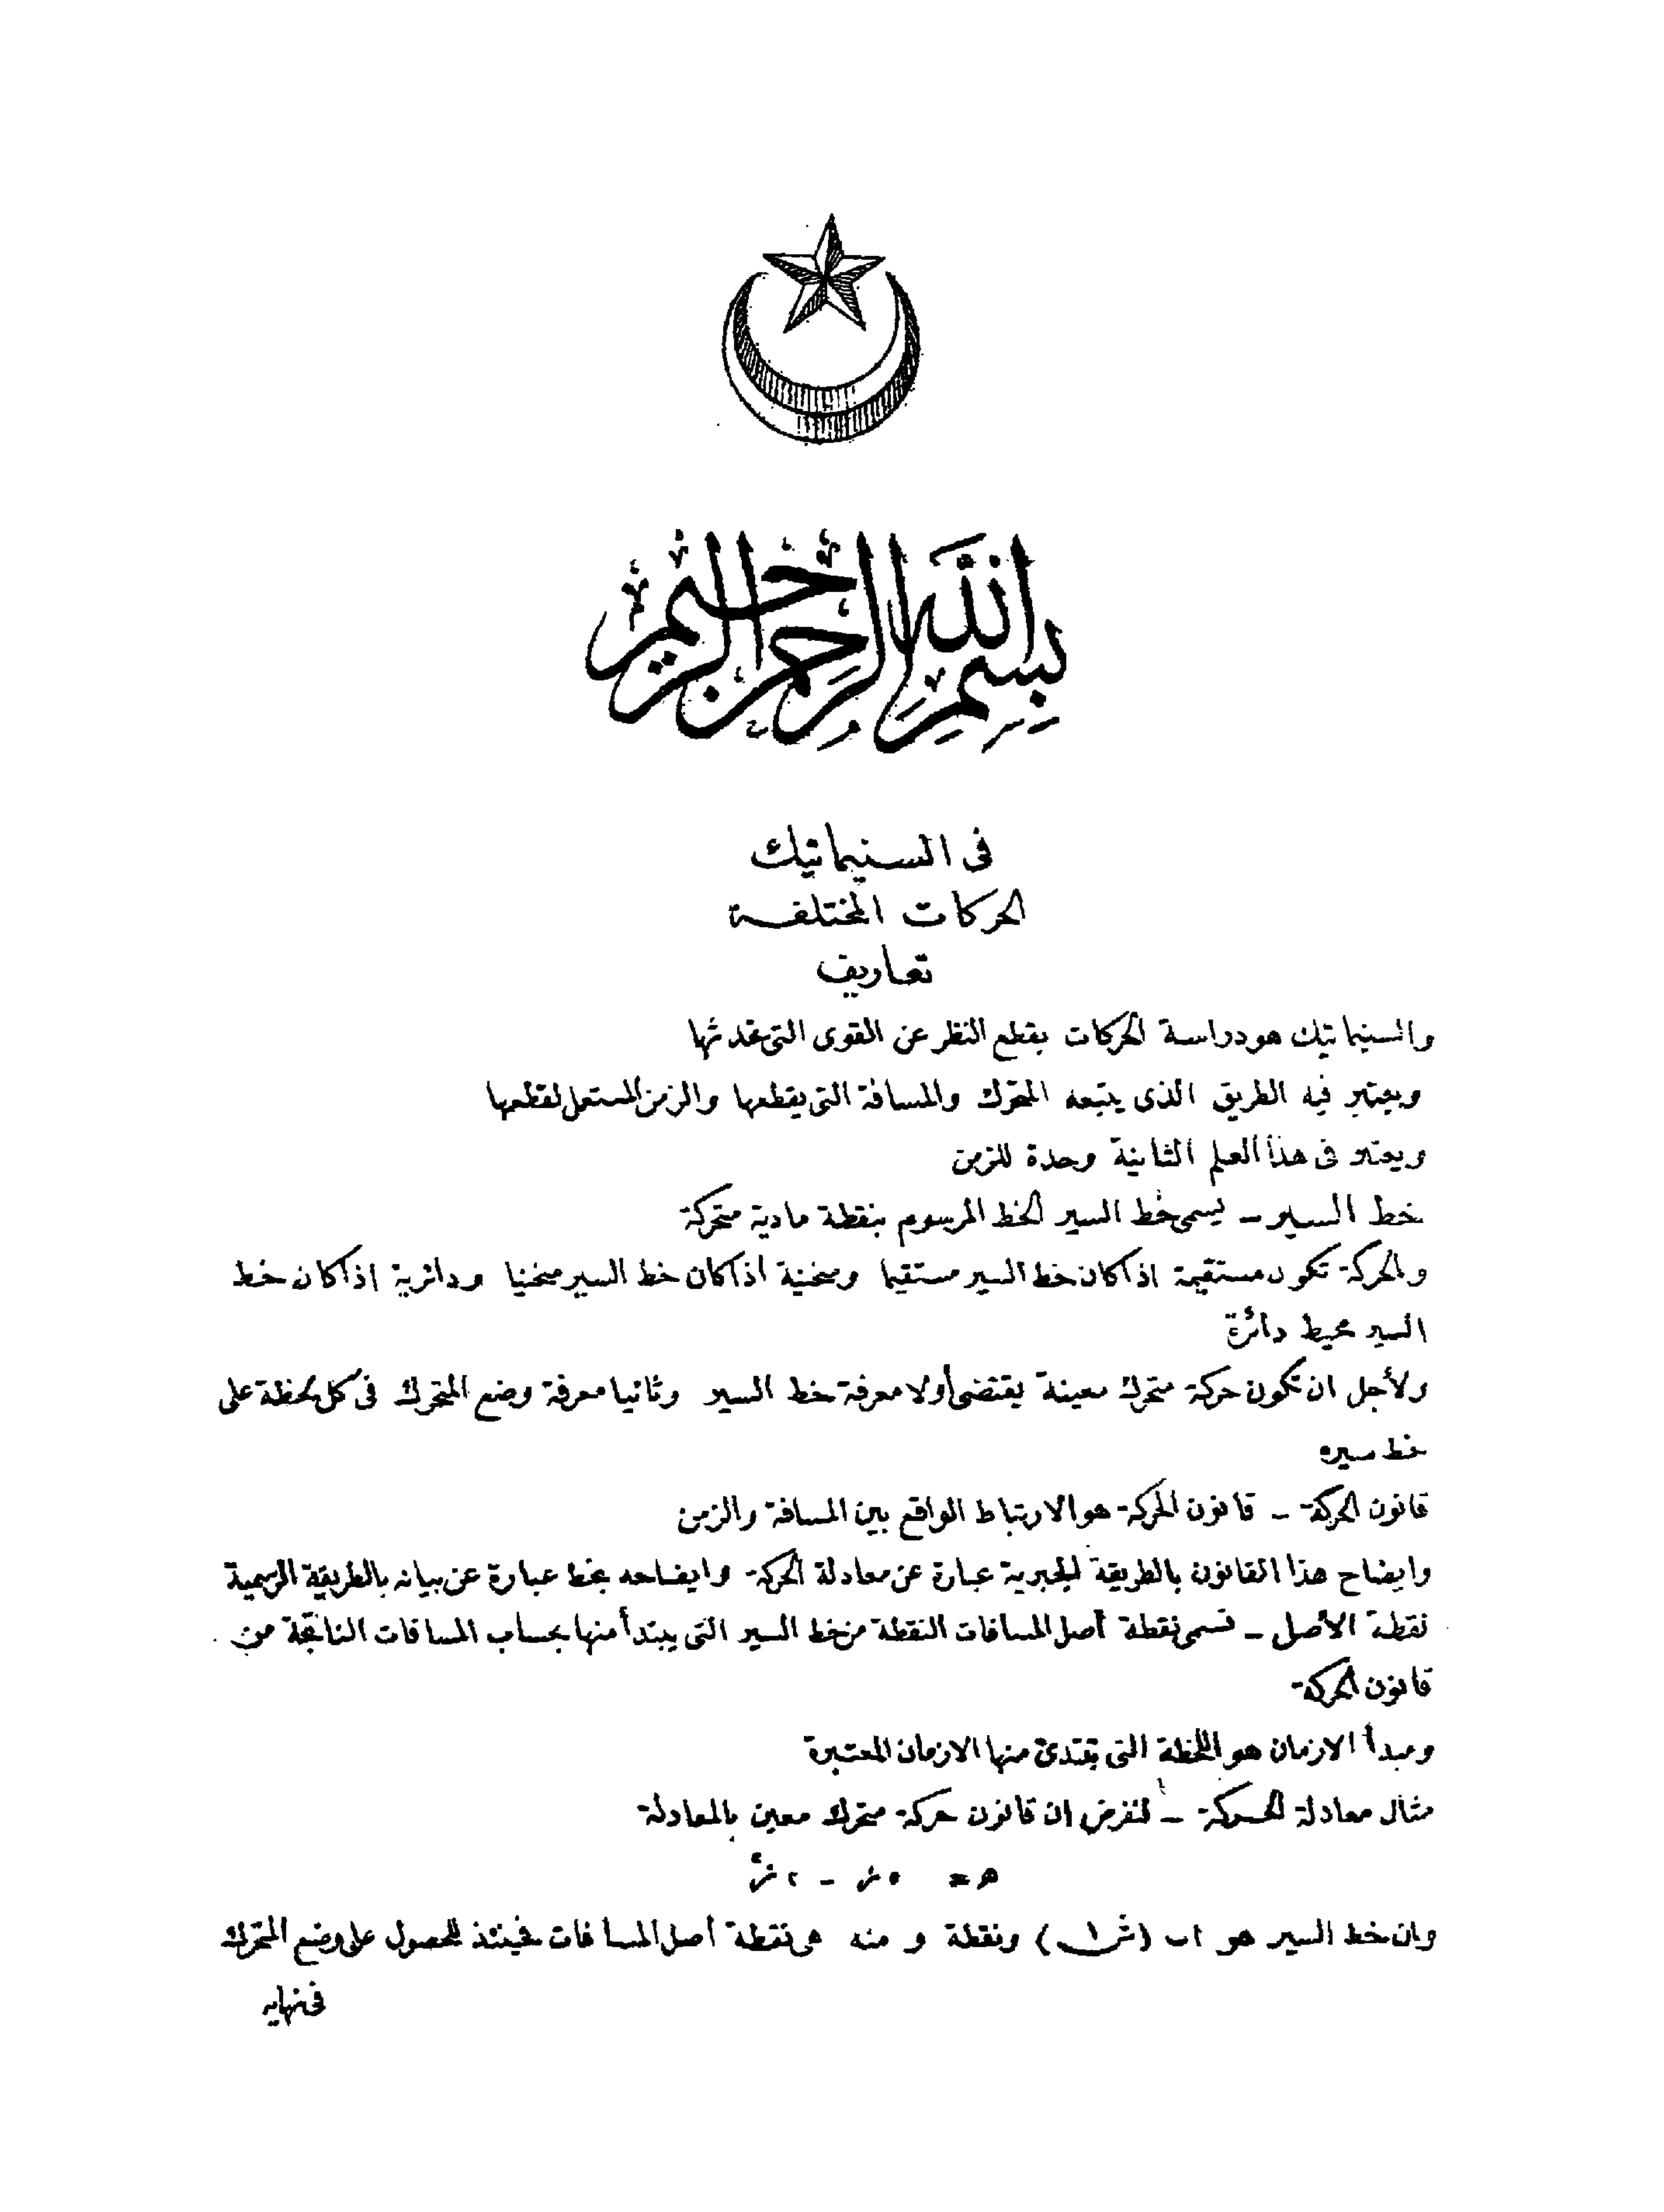 بسم الله الرحمن الرحيم
فى السنيماتيك
الحركات المختلفة
تعاريف
والسنيماتيك هو دراسة الحركات بقطع النظر عن القوى التى تحدثها
ويعتبر فيه الطريق الذى يتبعه المتحرك والمسافة التى يقطعها والزمن المستعمل لقطعها
ويعتبر فى هذا العلم الثانية وحدة للزمن
خط السير – يسمى خط السير الخط المرسوم بنقطة مادية متحركة
والحركة تكون مستقيمة اذا كان خط السير مستقيما ومنحنية اذا كان خط السير منحنيا ودائرية اذا كان خط
السير محيط دائرة
ولأجل ان تكون حركة متحرك معينة يقتضى أولا معرفة خط السير وثانيا معرفة وضع المتحرك فى كل لحظة على
خط سيره
قانون الحركة – قانون الحركة هو الارتباط الواقع بين المسافة والزمن
وايضاح هذا القانون بالطريقة الجبرية عبارة عن معادلة الحركة وايضاحه بخط عبارة عن بيانه بالطريقة الرسمية
نقطة الأصل – تسمى نقطة أصل المسافات النقطة من خط السير التى يبتدأ منها بحساب المسافات الناتجة من
قانون الحركة
ومبدأ الازمان هو اللحظة التى تبتدئ منها الازمان المعتبرة
مثال معادلة الحركة – لنفرض ان قانون حركة متحرك معين بالمعادلة
هـ = ٥ز – ٢ز٢
وان خط السير هو اب (ش١) ونقطة و منه هى نقطة أصل المسافات فحينئذ للحصول على وضع المتحرك
فى نهاية